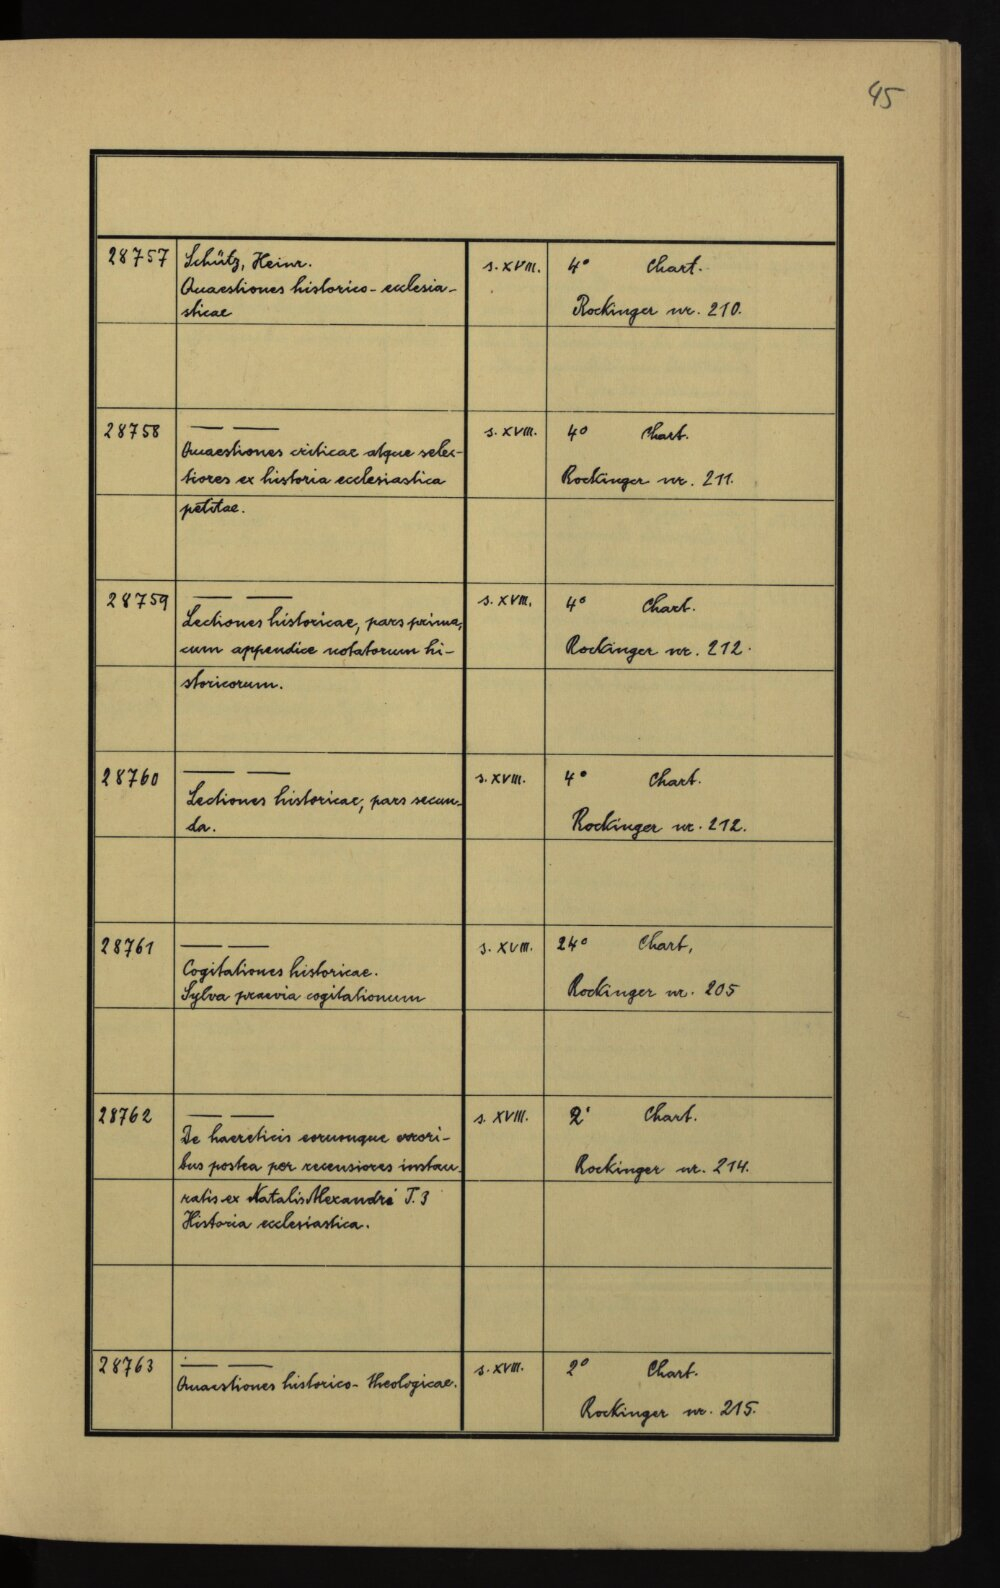 45
28757 Schütz, Heinr. s. XVIII. 4° Chart.
Quaestiones historico-ecclesia-
sticae Rockinger nr. 210.
28758 — — s. XVIII. 4° Chart.
Quaestiones criticae atque selec-
tiores ex historia ecclesiastica Rockinger nr. 211.
petitae.
28759 — — s. XVIII. 4° Chart.
Lectiones historicae, pars prima,
cum appendice notatorum hi- Rockinger nr. 212.
storicorum.
28760 — — s. XVIII. 4° Chart.
Lectiones historicae, pars secun-
da. Rockinger nr. 212.
28761 — — s. XVIII. 24° Chart,
Cogitationes historicae.
Sylva praevia cogitationum Rockinger nr. 205
28762 — — s. XVIII. 2° Chart.
De haereticis eorumque errori-
bus postea per recensiores instau- Rockinger nr. 214.
ratis ex Natalis Alexandri T. 3
Historia ecclesiastica.
28763 — — s. XVIII. 2° Chart.
Quaestiones historico-theologicae.
Rockinger nr. 215.